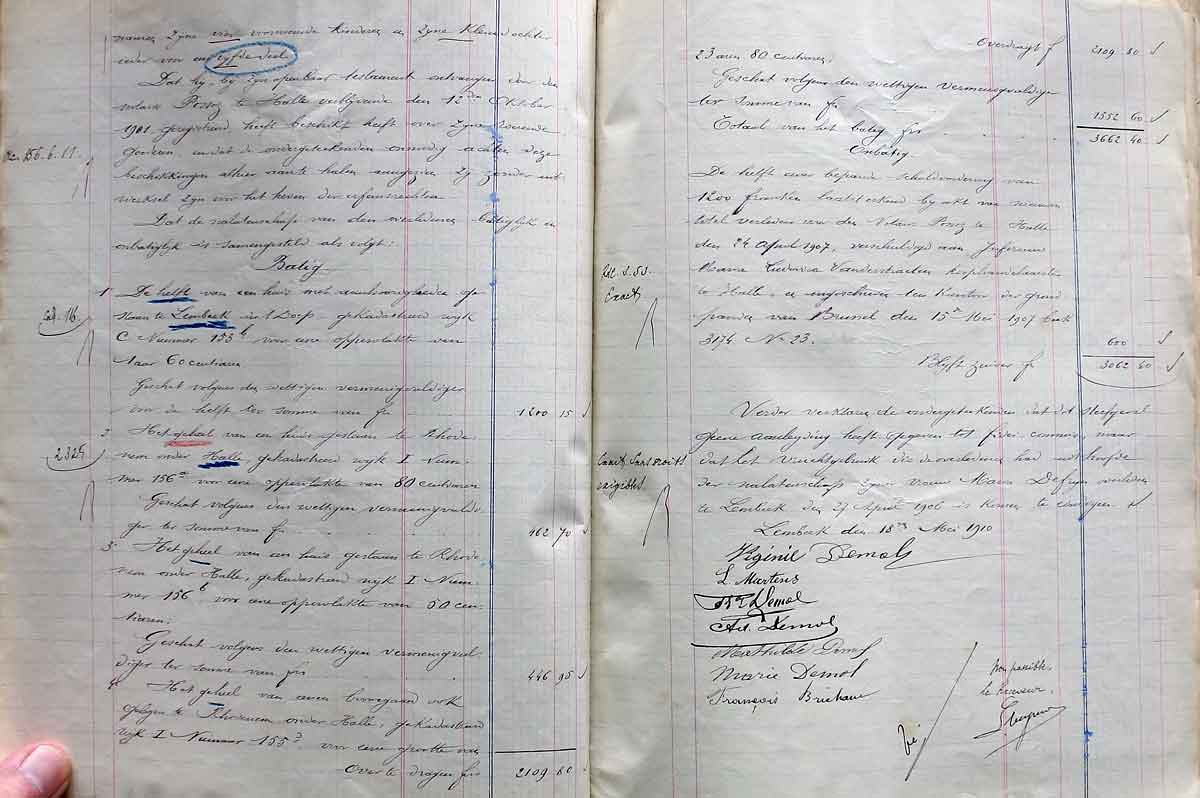 namen zyne vier voornoemde kinderen en zyne Kleindochter
ieder voor een vyfde deel.
Dat hy, by zyn openbaar testament ontvangen door den
notaris Possoz te Halle verblyvende den 12den Oktober
1901 geregistreerd heeft beschikt heeft over zyne roerende
goederen, en dat de ondergeteekenden onnoodig achten deze
beschikkingen alhier aan te halen aangezien zy zonder uit
werksel zyn voor het heven der erfenisrechten.
Dat de nalatenschap van den overledene batiglyk en
onbatiglyk is samengesteld als volgt:
Batig
1 De helft van een huis met aanhoorigheden ge
staan te Lembeek in 't Dorp gekadastreerd wyk
C Nummer 153b voor eene oppervlakte van
1 aar 60 centiaren
Geschat volgens den wettigen vermenigvuldiger
voor de helft ter somme van fr 1200 15
2 Het geheel van een huis gestaan te Rhode-
nem onder Halle, gekadastreerd wyk I Num-
mer 156a voor eene oppervlakte van 80 centiaren
Geschat volgens den wettigen vermenigvuldi-
ger ter somme van fr 462 70
3 Het geheel van een huis gestaan te Rhode
nem onder Halle, gekadastreerd wyk I Num-
mer 156b voor eene oppervlakte van 50 cen-
tiaren;
Geschat volgens den wettigen vermenigvul-
diger ter somme van frs 446 95
4 Het geheel van eenen boomgaard ook
gelegen te Rhodenem onder Halle, gekadastreerd
wyk I Nummer 155d, voor eene grootte van
Over te dragen frs 2109 80
56.6.11
Col. 16.
2325
Overdragt fr 2109 80
23 aren 80 centiaren;
Geschat volgens den wettigen vermenigvuldiger
ter somme van fr 1552 60
Totaal van het batig frs 3662 40
Onbatig.
De helft eener bepaalde schuldvordering van
1200 franken vastgesteld by akt van nieuwen
titel verleden voor den Notaris Possoz te Halle
den 24 April 1907, verschuldigd aan Juffrouw
Maria Ludovica Vanderstraeten
te Halle, en ingeschreven ten Kantoor der grond
panden van Brussel den 15n Mei 1907 boek
3174 No 23. 600
Blyft zuiver fr 3062 40
Exact
Verder verklaren de ondergeteekenden dat dit sterfgeval
geene aanleyding heeft gegeven tot fidei commis, maar
dat het vruchtgebruik die de overledene had uit hoofde
der nalatenschap zyner vrouw Maria verleden
te Lembeek den 27 April 1906 is komen te
exact sans droits
exigibles
Lembeek den 18n Mei 1910
Virginie Demol
L Martens
Demol
Ad. Demol
Mathilde Demol
Marie Demol
François Brichaux
Non passible
le Receveur